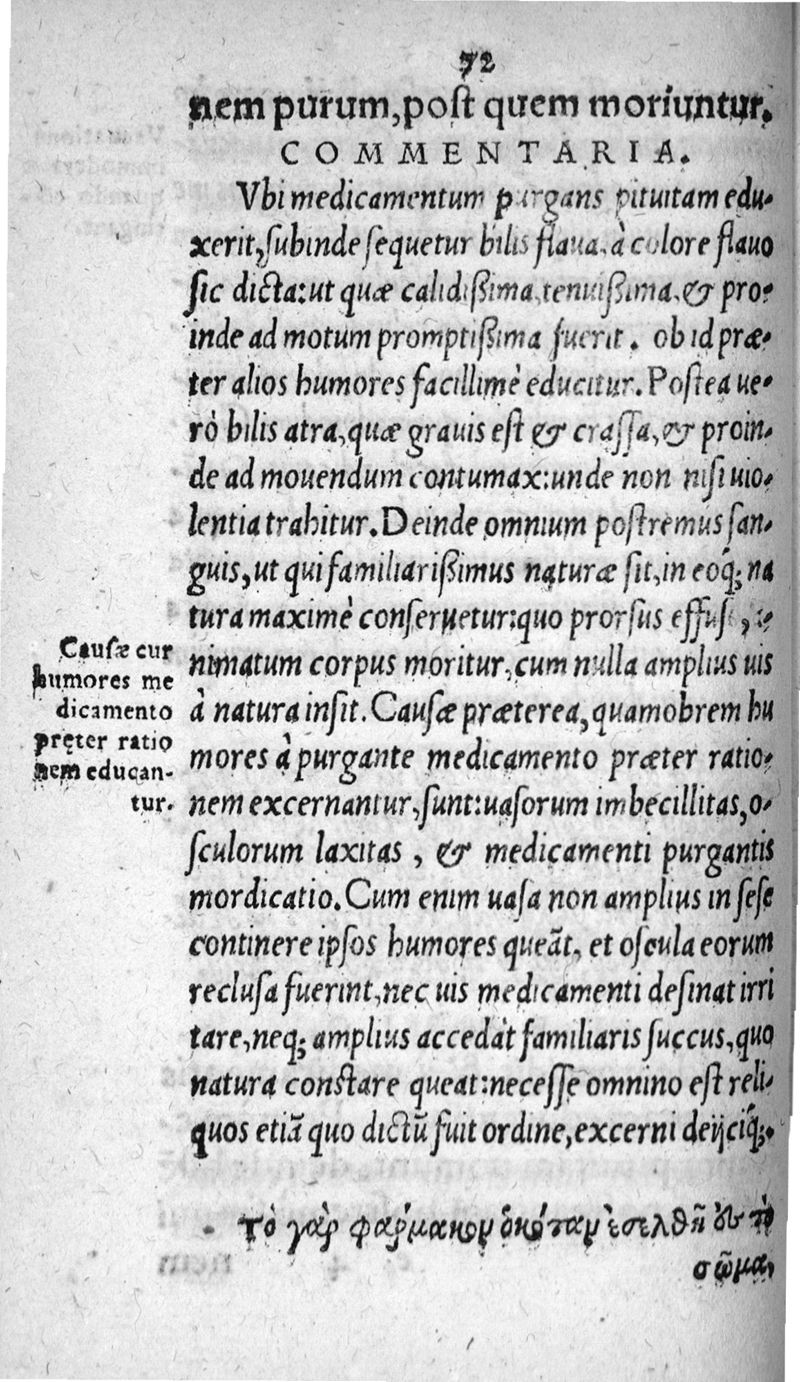 72
nem purum, poſt quem moriuntur.
COMMENTARIA.
Vbi medicamentum purgans pituitam edu-
xerit, ſubinde ſequetur bilis flaua, à colore flauo
ſic dicta: ut quæ calidißima, tenuißima, & pro-
inde ad motum promptißima fuerit. ob id præ-
ter alios humores facillimè educitur. Poſtea ue-
rò bilis atra, quæ grauis eſt & craſſa, & proin-
de ad mouendum contumax: unde non niſi uio-
lentia trahitur. Deinde omnium poſtremus ſan-
guis, ut qui familiarißimus naturæ ſit, in eoq; na
tura maximè conſeruetur: quo prorſus effuſo,
nimatum corpus moritur, cum nulla amplius uis
à natura inſit. Cauſæ præterea, quamobrem hu
mores à purgante medicamento præter ratio-
nem excernantur, ſunt: uaſorum imbecillitas, o-
ſculorum laxitas, & medicamenti purgantis
mordicatio. Cum enim uaſa non amplius in ſeſe
continere ipſos humores queãt, et oſcula eorum
recluſa fuerint, nec uis medicamenti deſinat irri
tare, neq; amplius accedàt familiaris ſuccus, quo
natura conſtare queat: neceſſe omnino eſt reli-
quos etiã quo dictũ fuit ordine, excerni deijciq;.
Cauſæ cur
humores me
dicamento
pręter ratio
nem educan-
tur.
Τὸ γὰρ φάρμακον ὁκόταν ἐσελθῇ ἐς τὸ
σῶμα,